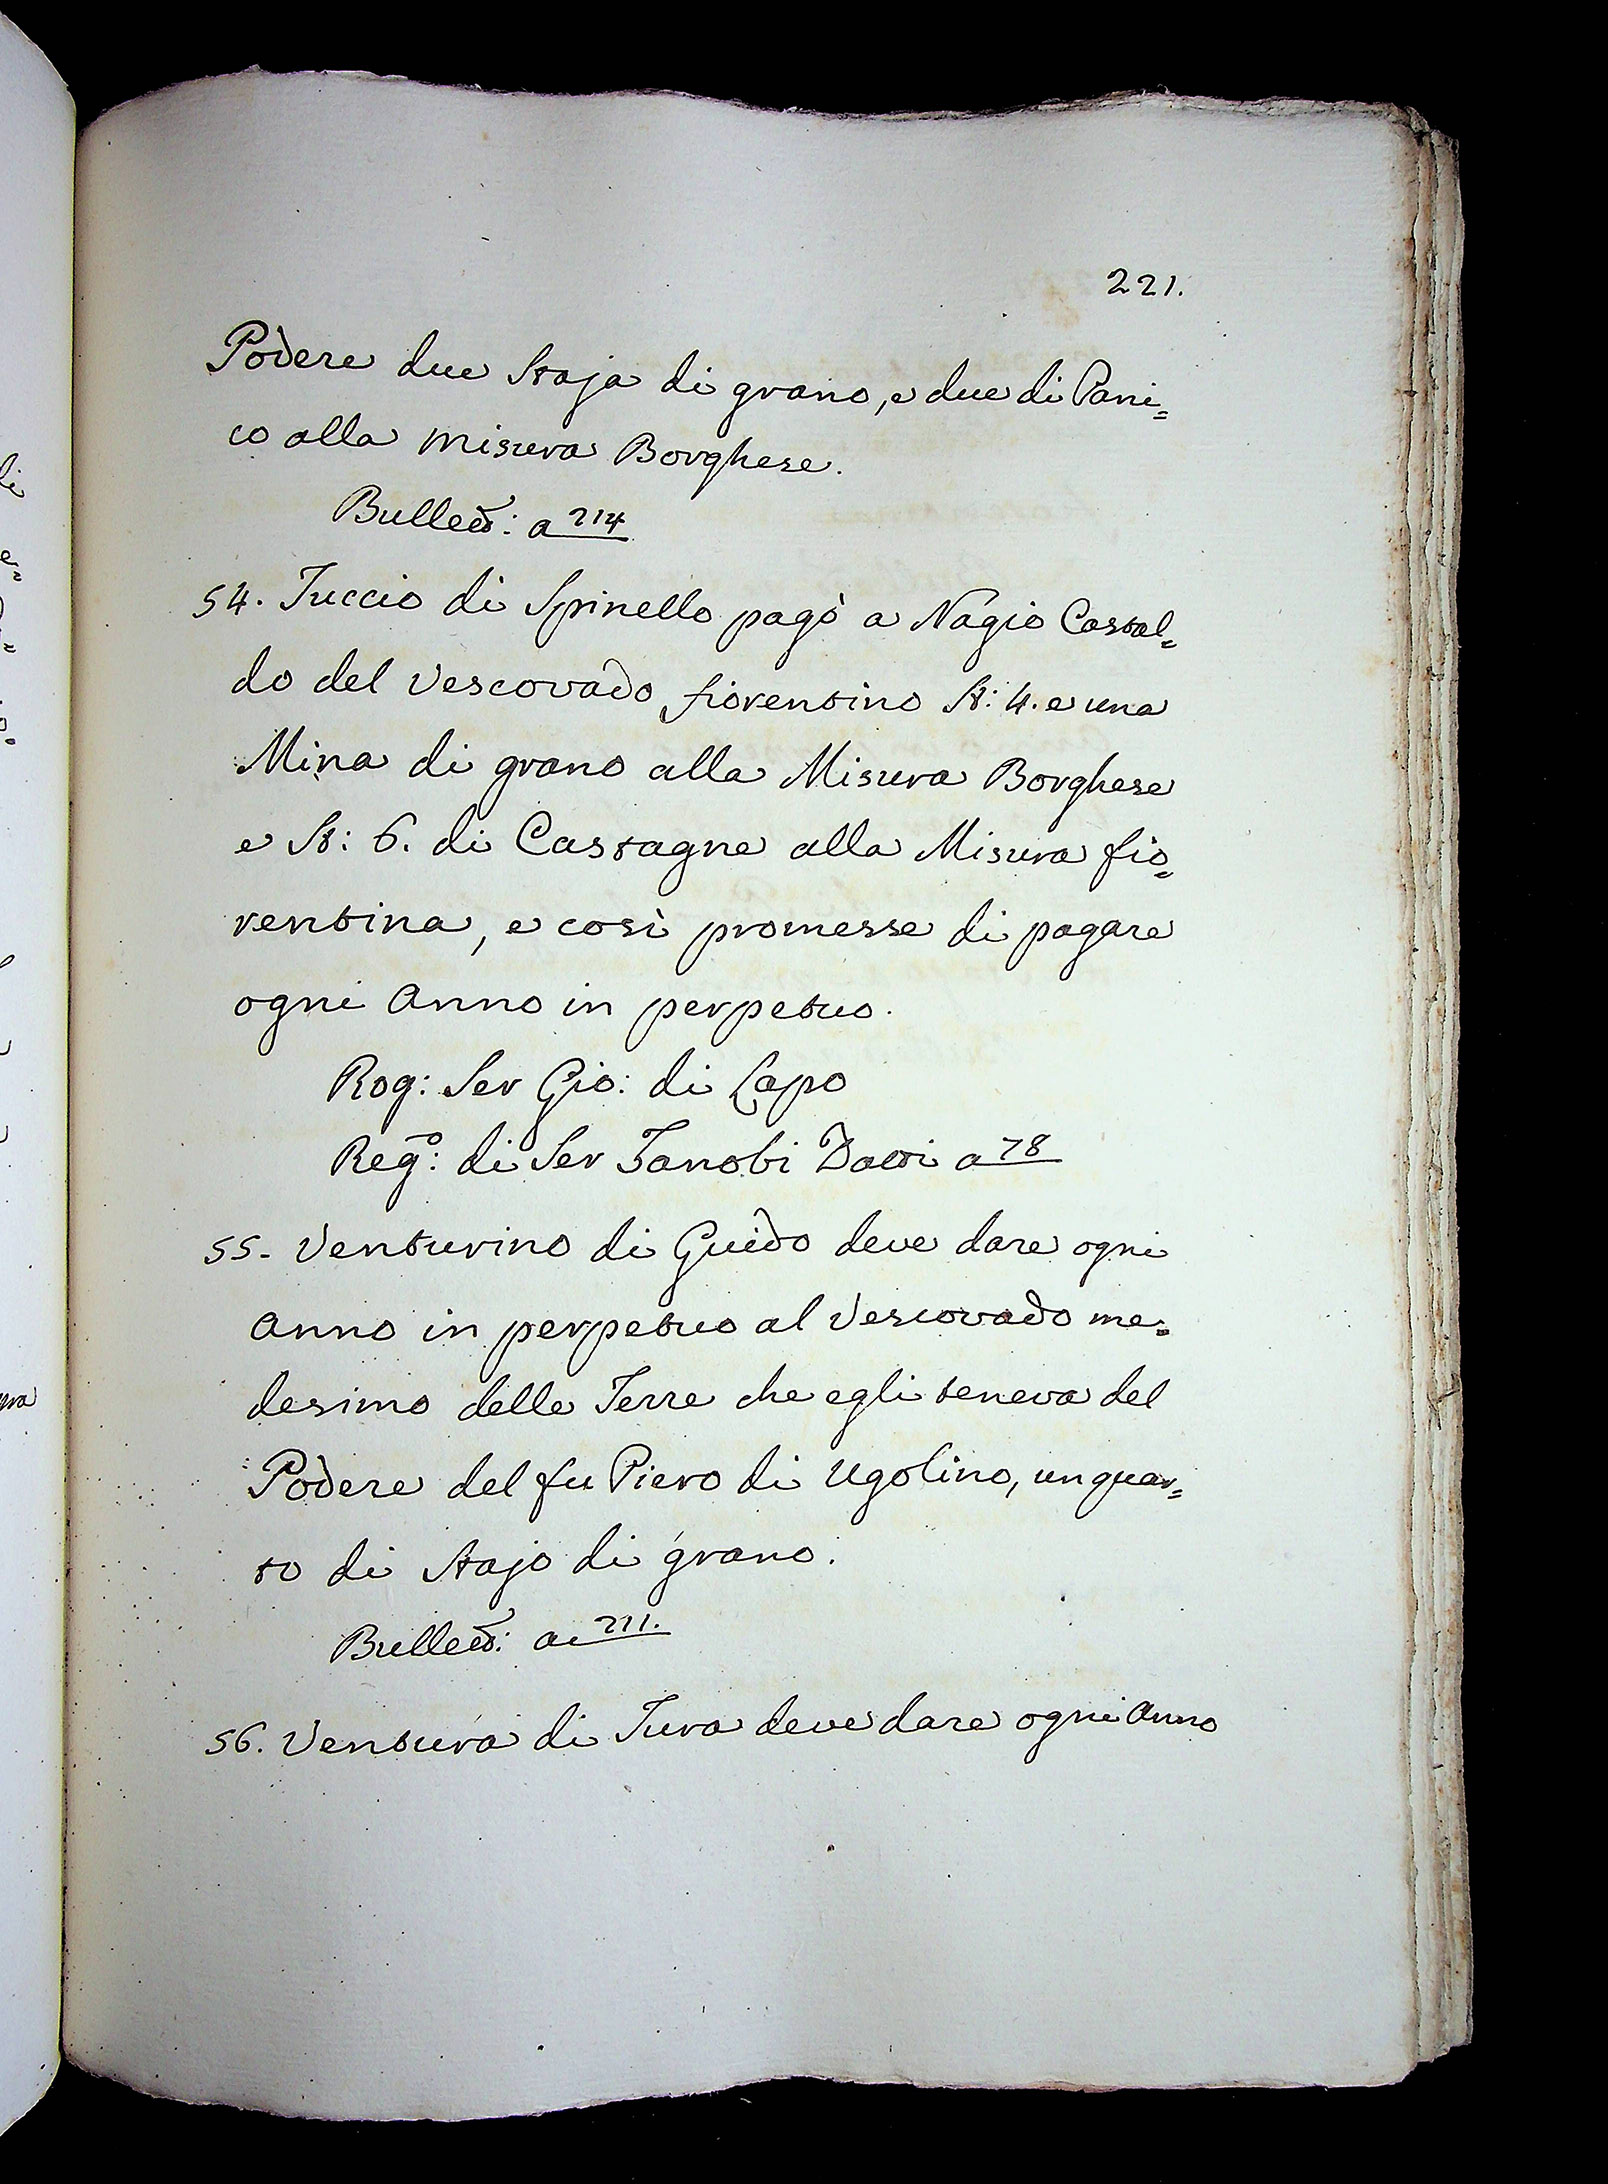 221.
Podere due Staja di grano, e due di Pani=
co alla misura Borghese.
Bullett: a 214
54. Tuccio di Spinello pagò a Nagio Castal=
do del Vescovado fiorentino St: 4. e una
Mina di grano alla Misura Borghese
e St: 6. di Castagne alla Misura fio=
rentina, e così promesse di pagare
ogni Anno in perpetuo.
Rog: Ser Gio: di Lapo
Reg.º: di Ser Zanobi Datti a 78
55. Venturino di Guido deve dare ogni
Anno in perpetuo al Vescovado me=
desimo delle Terre che egli teneva del
Podere del fu Piero di Ugolino, un quar=
to di Stajo di grano.
Bullett: a 211.
56. Ventura di Tura deve dare ogni Anno